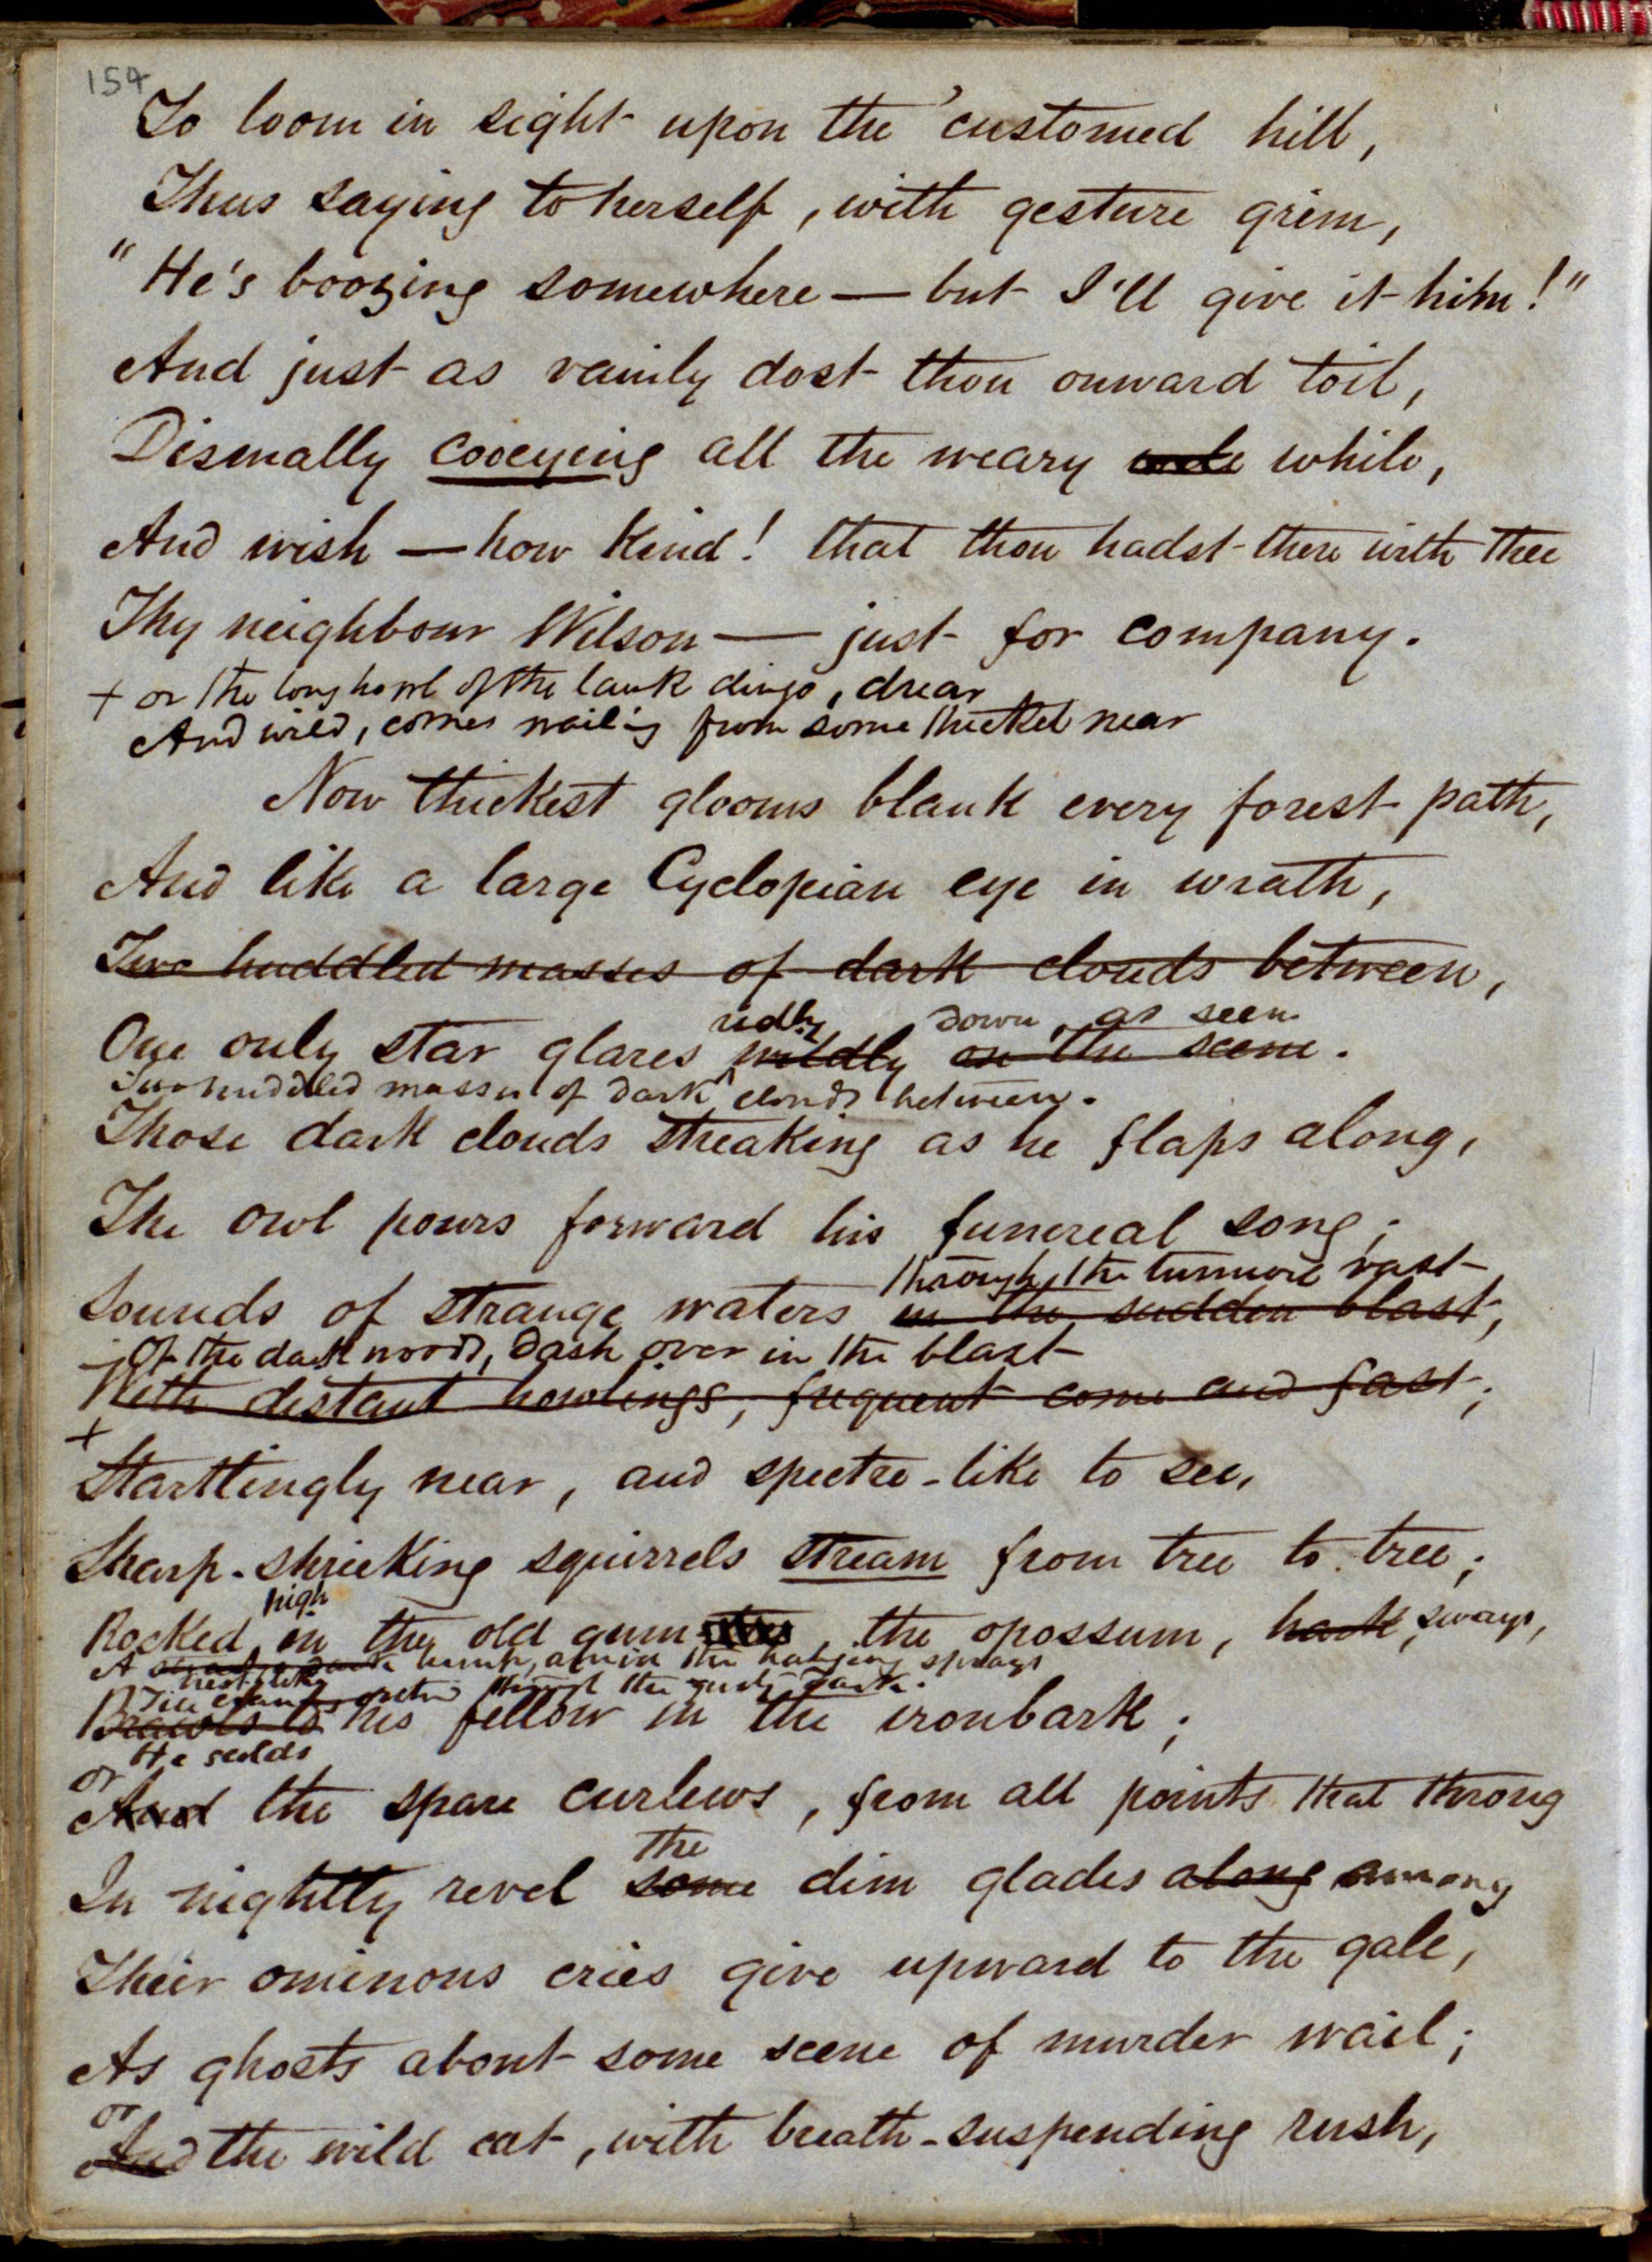 154
To loom in sight upon the 'customed hill,
Thus saying to herself, with gesture grim,
"He's boozing somewhere — but I'll give it him!"
And just as vainly dost thou onward toil,
Dismally cooeying all the weary while,
And wish — how kind! that thou hadst there with thee
Thy neighbour Wilson — just for company.
+ or the long howl of the lank dingo, drear
And wild, comes wailing from some thicket near
Now thickest glooms blank every forest path,
And like a large Cyclopian eye in wrath,
Two huddled masses of dark clouds between,
redly down, as seen
One only star glares wildly on the scene.
Two huddled masses of dark clouds between.
Those dark clouds streaking as he flaps along,
The owl pours forward his funereal song;
through the turmoil vast
Sounds of strange waters in the sudden blast,
Of the dark woods, dash over in the blast
With distant howlings, frequent come and fast;
+
Startlingly near, and spectre-like to see,
Sharp-shrieking squirrels stream from tree to tree;
high
Rocked on the old gum, the opossum, hark, sways,
A lump, amid the hanging sprays
nest-like
Till through the dark.
Brawls to his fellow in the ironbark;
He scolds
or
And the spare curlews, from all points that throng
the
In nightly revel some dim glades along among
Their ominous cries give upward to the gale,
As ghosts about some scene of murder wail;
or
And the wild cat, with breath-suspending rush,